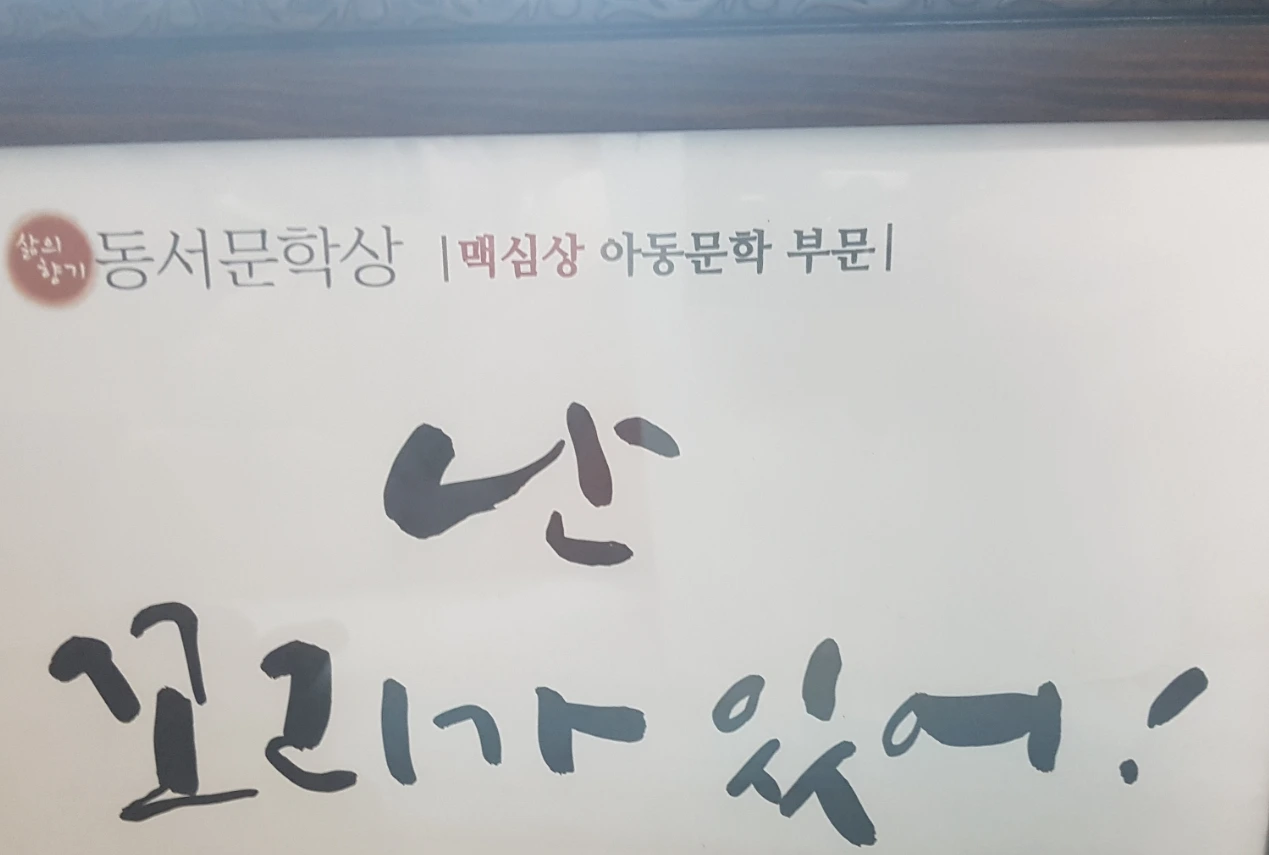 삶의
향기
동서문학상 |맥심상 아동문학 부문|
난
꼬리가 있어!